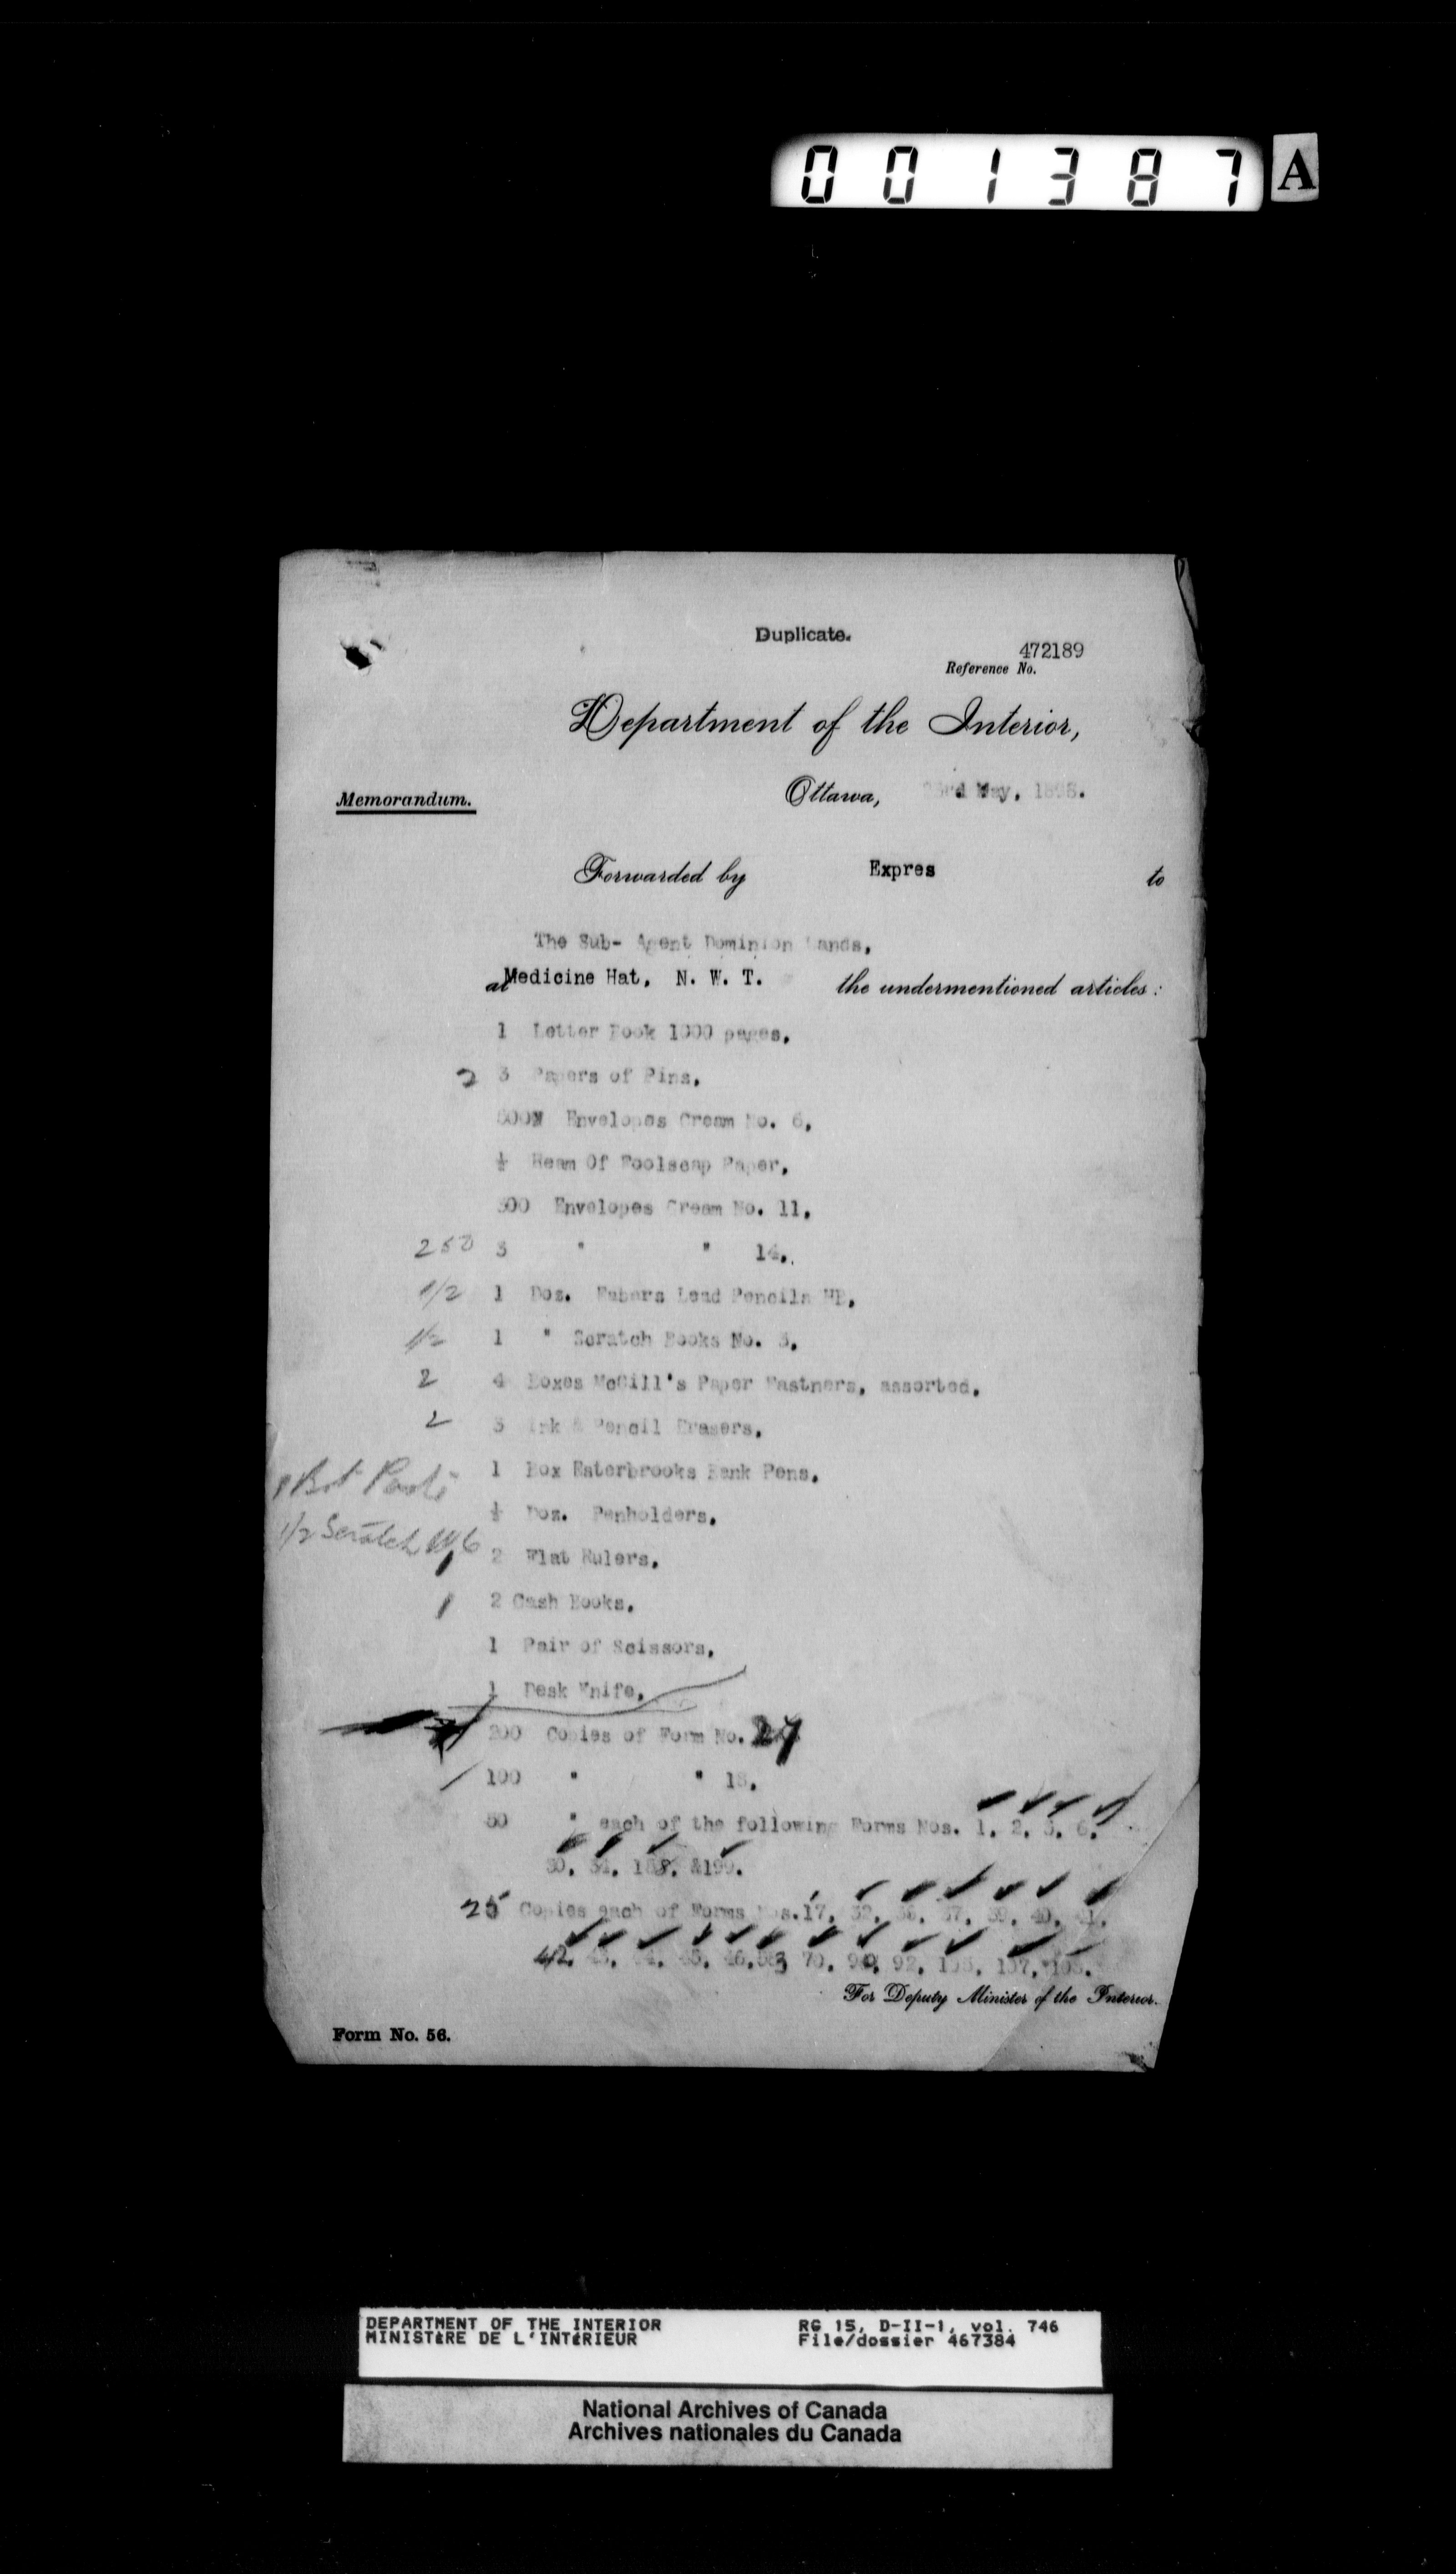 001387 A
Duplicate.
472189
Reference No.
Department of the Interior,
Memorandum.
Ottawa, 23rd May, 1898.
Forwarded by Expres to
The Sub- Agent Dominion Lands,
at Medicine Hat, N. W. T. the undermentioned articles:
1 Letter Book 1000 pages,
2 3 Papers of Pins,
Envelopes Cream No. 6,
½ Ream Of Foolscap Paper,
500 Envelopes Cream No. 11,
250 3 " " 14,
1/2 1 Doz. Fabers Lead Pencils HB,
1/2 1 " Scratch Books No. 3,
2 4 Boxes McGill's Paper Fastners, assorted,
2 3 Ink & Pencil Erasers,
1 Box Esterbrooks Bank Pens,
1 Bot Paste
½ Doz. Penholders,
1/2 Scratch No 6
1 2 Flat Rulers,
1 2 Cash Books,
1 Pair of Scissors,
1 Desk Knife,
200 Copies of Form No. 27
100 " " 18,
50 " each of the following Forms Nos. 1, 2, 5, 6,
30, 34, &199.
25 Copies each of Forms Nos. 17, 32, 36, 37, 39, 40, 41,
42, 43, 44, 45, 46, 70, 90, 92, 107,
For Deputy Minister of the Interior.
Form No. 56.
DEPARTMENT OF THE INTERIOR RG 15, D-II-1, vol. 746
MINISTÈRE DE L'INTÉRIEUR File/dossier 467384
National Archives of Canada
Archives nationales du Canada